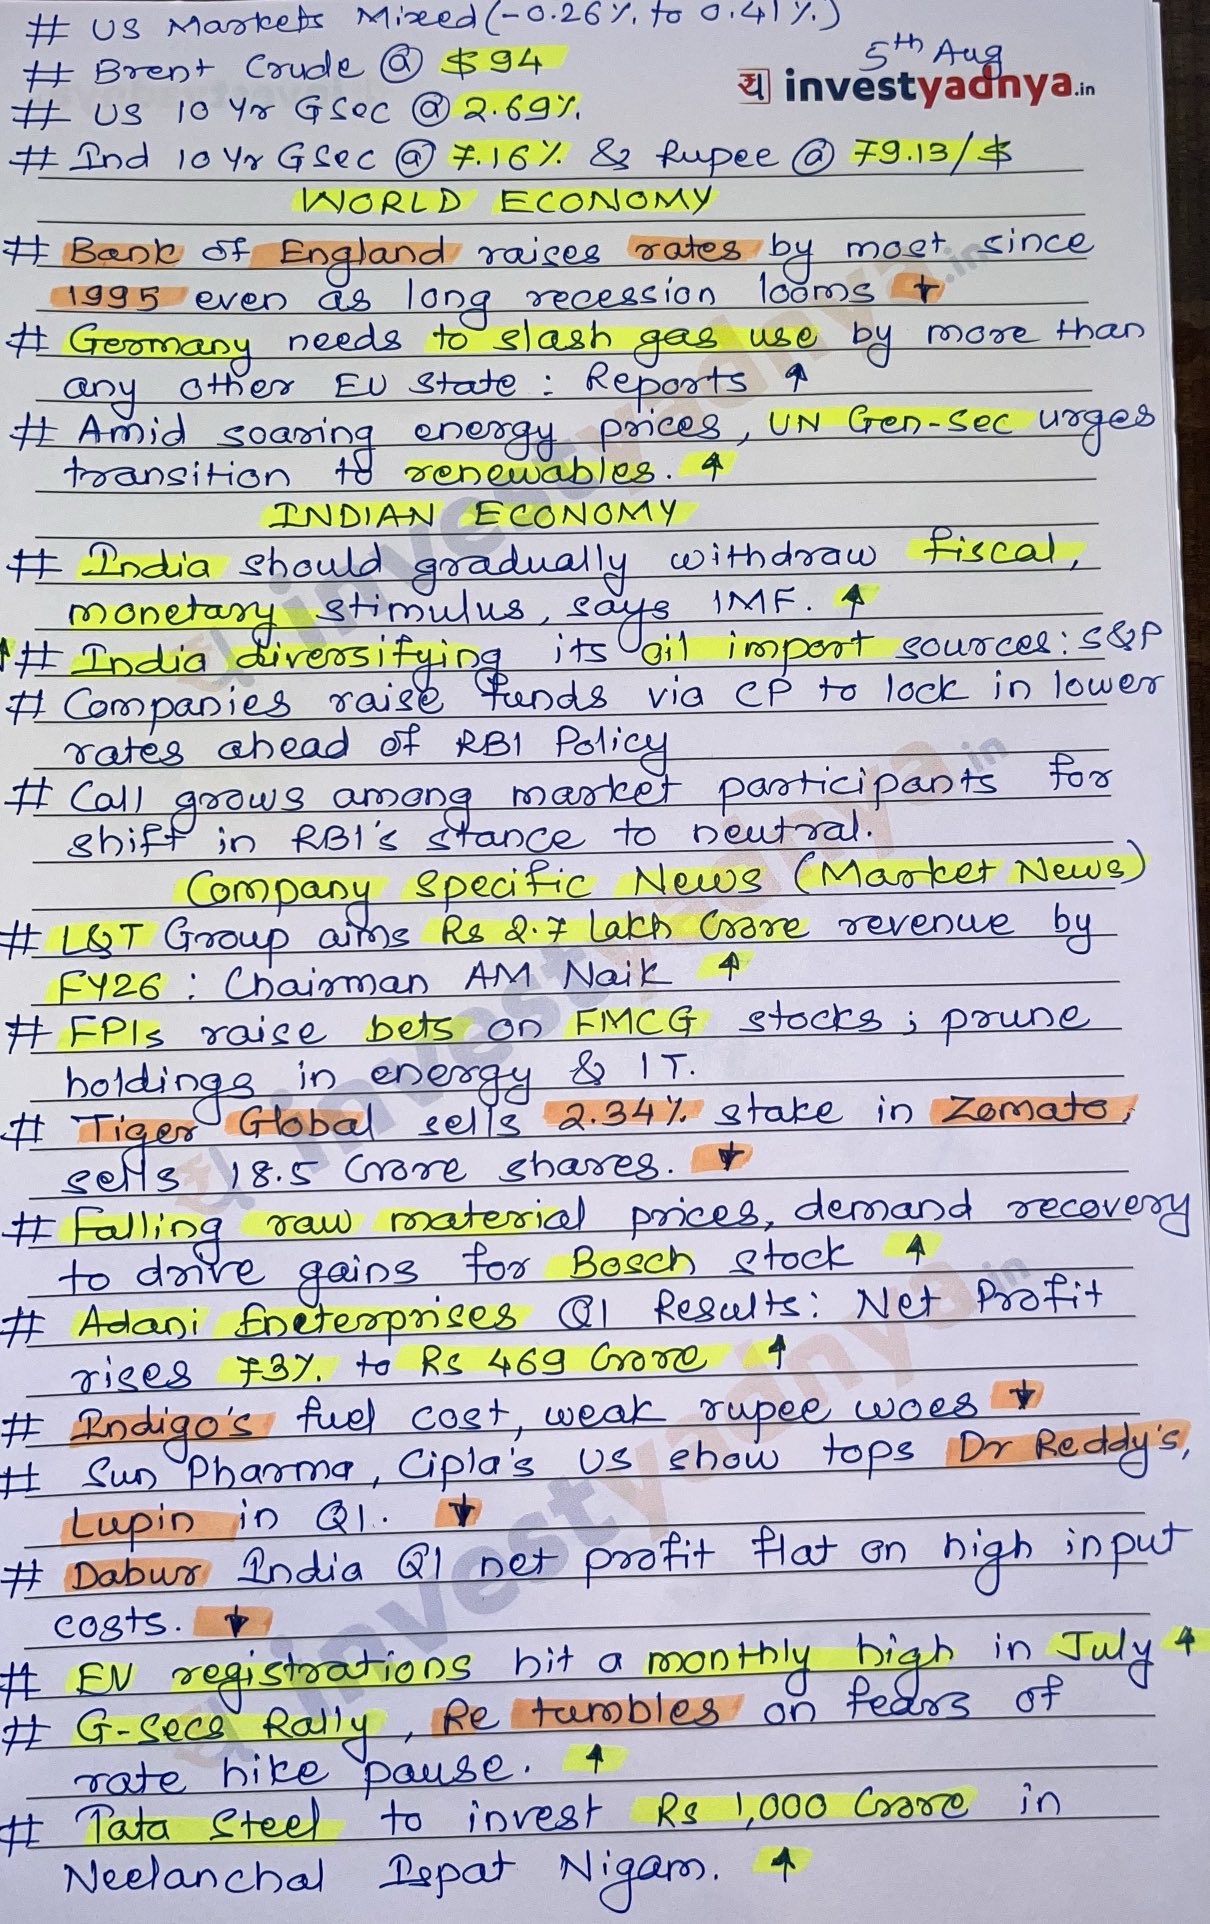 # US Markets Mixed (-0.26% to 0.41%)
5th Aug
# Brent Crude @ $94
investyadnya.in
# US 10 Yr GSec @ 2.69%
# Ind 10 Yr GSec @ 7.16% & Rupee @ 79.13/$
WORLD ECONOMY
# Bank of England raises rates by most since
1995 even as long recession looms ↓
# Germany needs to slash gas use by more than
any other EU State : Reports ↑
# Amid soaring energy prices, UN Gen-Sec urges
transition to renewables. ↑
INDIAN ECONOMY
# India should gradually withdraw fiscal,
monetary stimulus, says IMF. ↑
↑# India diversifying its oil import sources: S&P
# Companies raise funds via CP to lock in lower
rates ahead of RBI Policy
# Call grows among market participants for
shift in RBI's stance to neutral.
Company Specific News (Market News)
# L&T Group aims Rs 2.7 lakh Crore revenue by
FY26 : Chairman AM Naik ↑
# FPIs raise bets on FMCG stocks ; prune
holdings in energy & IT.
# Tiger Global sells 2.34% stake in Zomato,
sells 18.5 Crore shares. ↓
# Falling raw material prices, demand recovery
to drive gains for Bosch stock ↑
# Adani Eneterprises Q1 Results: Net Profit
rises 73% to Rs 469 Crore ↑
# Indigo's fuel cost, weak rupee woes ↓
# Sun Pharma, Cipla's US show tops Dr Reddy's,
Lupin in Q1. ↓
# Dabur India Q1 net profit flat on high input
costs. ↓
# EV registrations hit a monthly high in July ↑
# G-Secs Rally, Re tumbles on fears of
rate hike pause. ↑
# Tata Steel to invest Rs 1,000 Crore in
Neelanchal Ispat Nigam. ↑